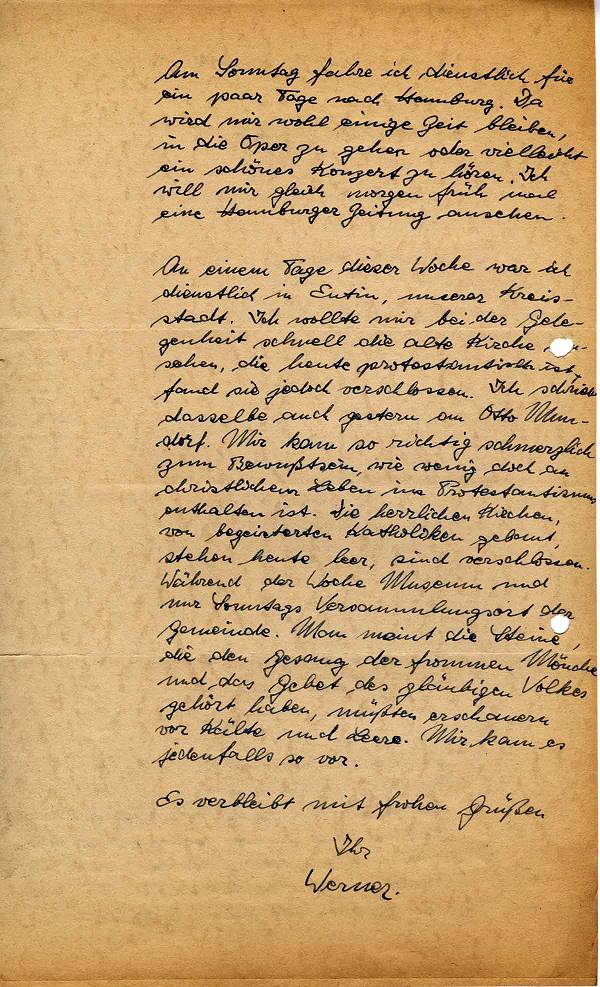 Am Sonntag fahre ich dienstlich für
ein paar Tage nach Hamburg. Da
wird mir wohl einige Zeit bleiben,
in die Oper zu gehen oder vielleicht
ein schönes Konzert zu hören. Ich
will mir gleich morgen früh mal
eine Hamburger Zeitung ansehen.
An einem Tage dieser Woche war ich
dienstlich in Eutin, unserer Kreis-
stadt. Ich wollte mir bei der Gele-
genheit schnell die alte Kirche an-
sehen, die heute protestantisch ist,
fand sie jedoch verschlossen. Ich schrieb
dasselbe auch gestern an Otto Mun-
dorf. Mir kam so richtig schmerzlich
zum Bewußtsein, wie wenig doch an
christlichem Leben im Protestantismus
enthalten ist. Die herrlichen Kirchen,
von begeisterten Katholiken gebaut,
stehen heute leer, sind verschlossen.
Während der Woche Museum und
nur Sonntags Versammlungsort der
Gemeinde. Man meint die Steine,
die den Gesang der frommen Mönche
und das Gebet des gläubigen Volkes
gehört haben, müßten erschauern
vor Kälte und Leere. Mir kam es
jedenfalls so vor.
Es verbleibt mit frohen Grüßen
Ihr
Werner.